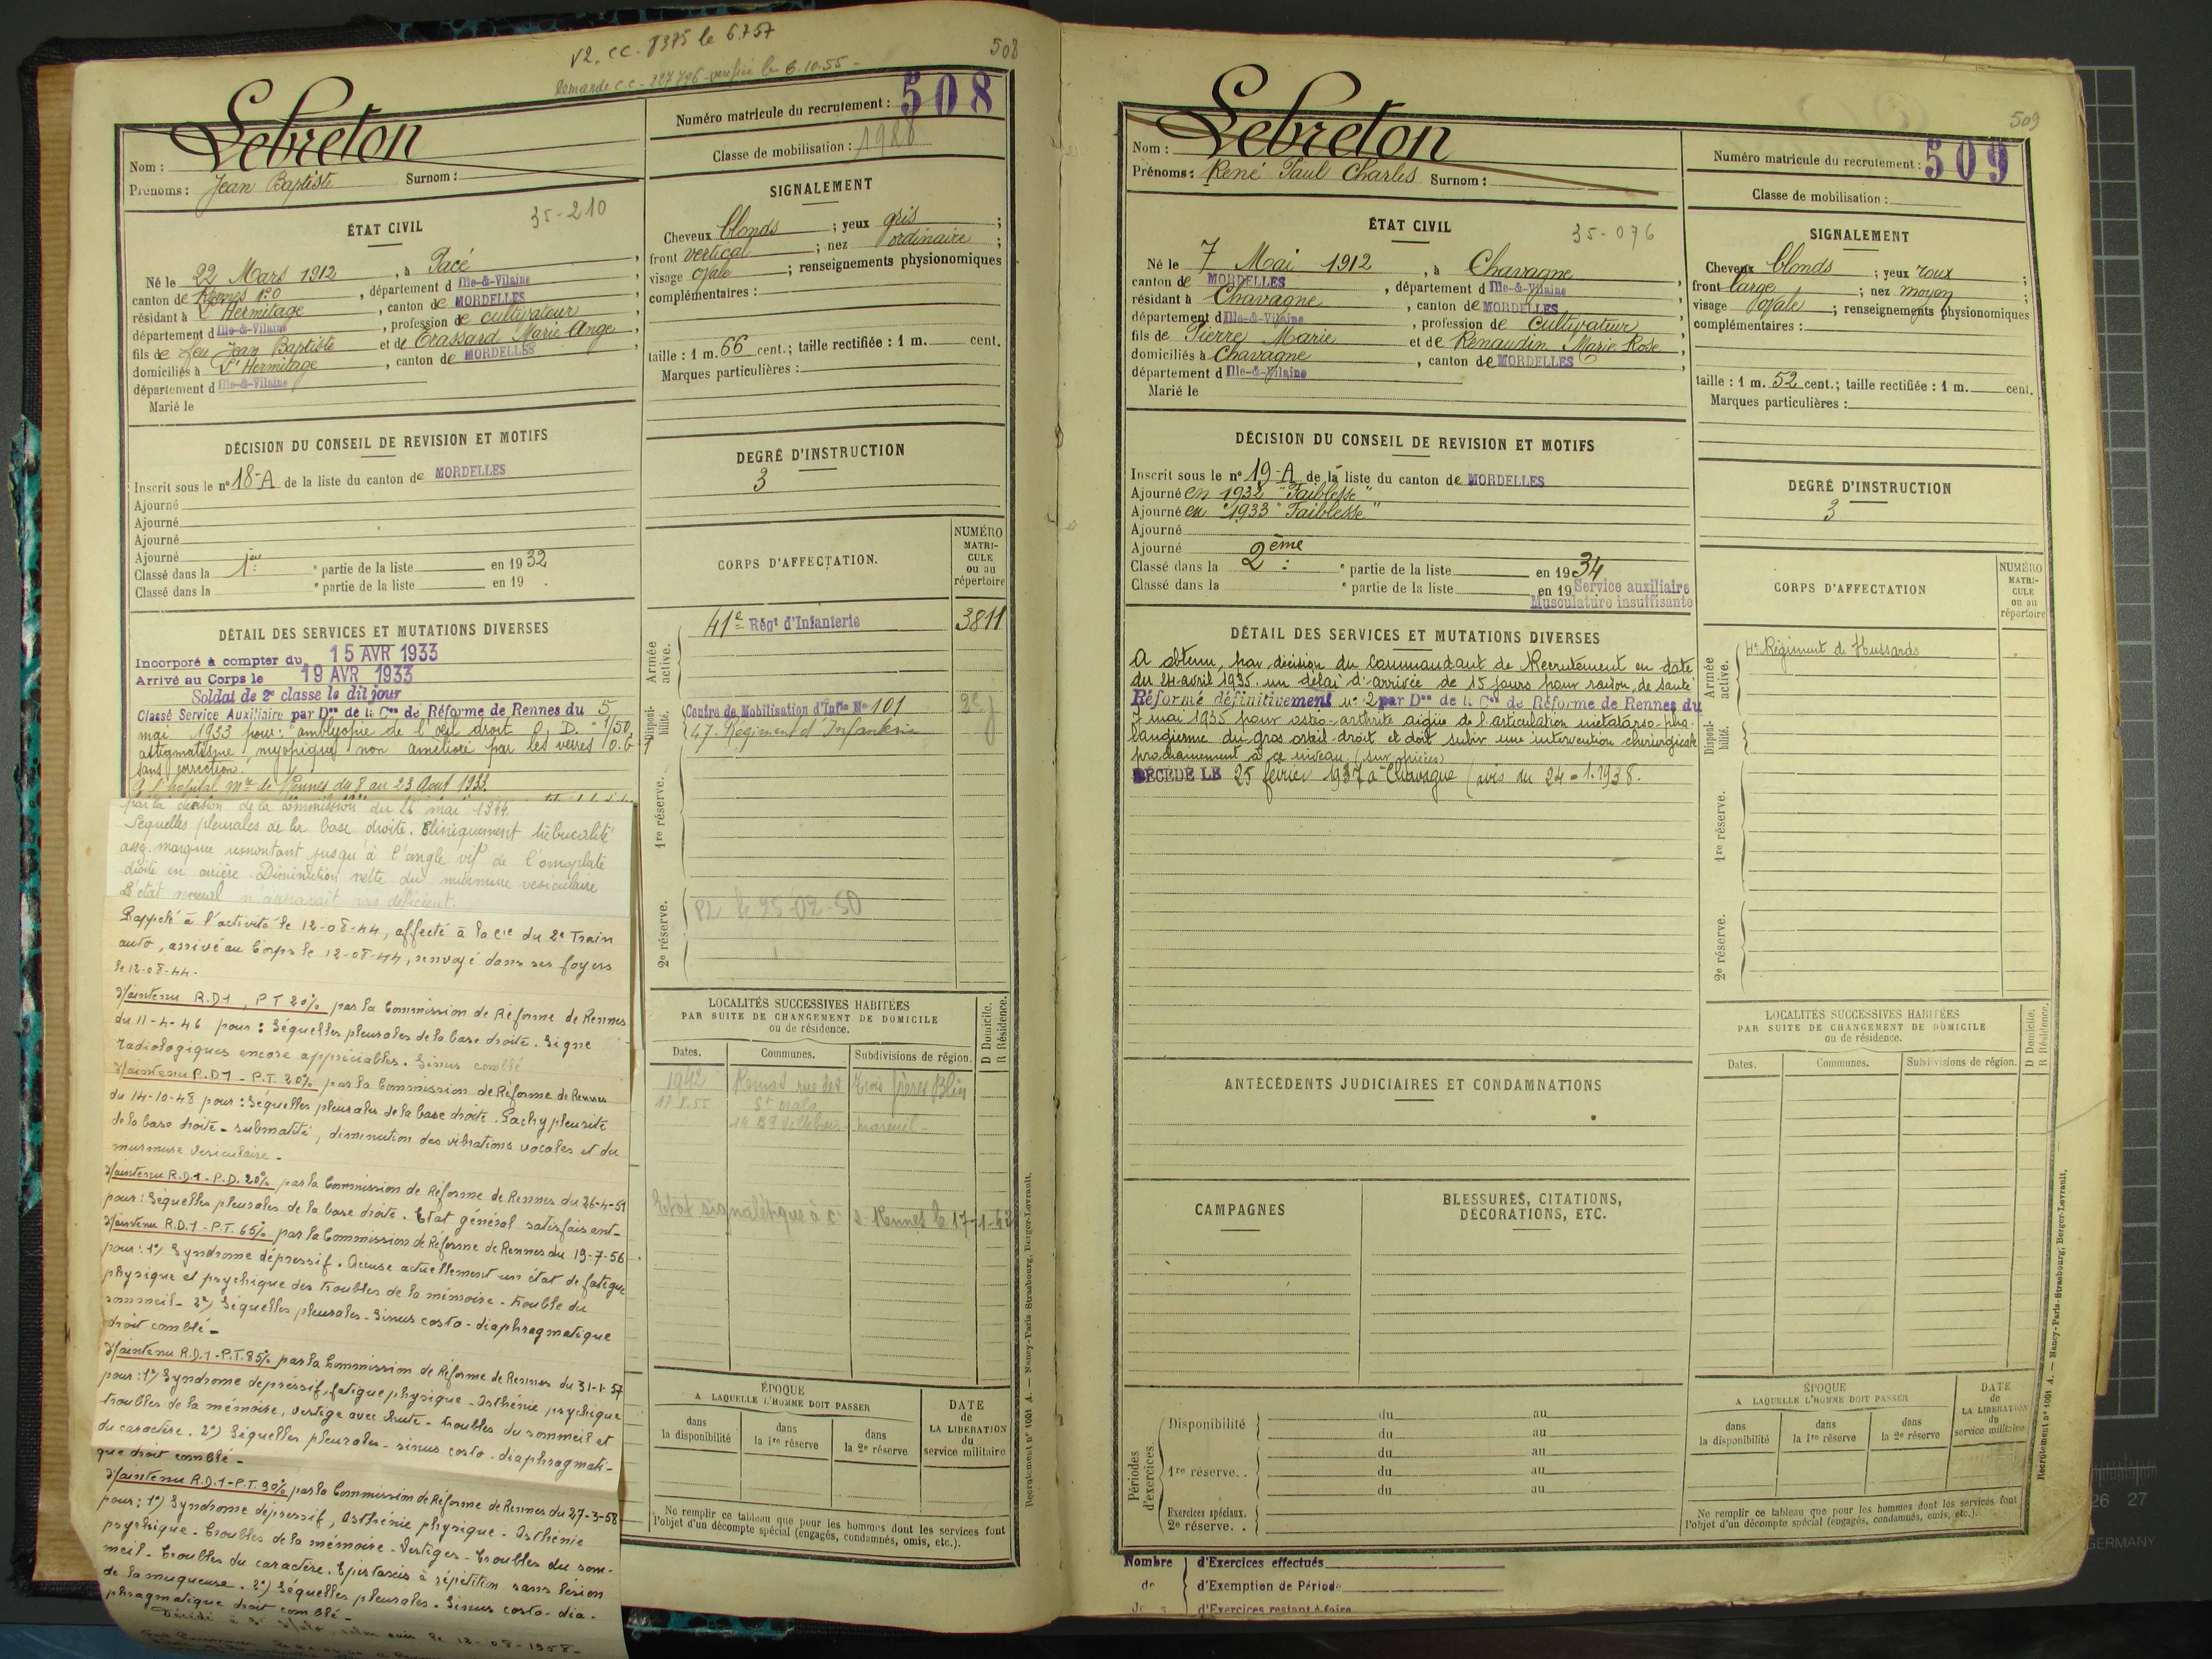 V2. CC. 8375 le 6.7.57
Demande C.C - 227796 - vérifié le 6.10.55 -
508
Nom : Lebreton
Prénoms : Jean Baptiste Surnom :
Numéro matricule du recrutement : 508
Classe de mobilisation :
35-210
ÉTAT CIVIL
Né le 22 Mars 1912, à Pacé,
canton de Rennes N.O, département d Ille-&-Vilaine
résidant à L'Hermitage, canton de MORDELLES,
département d Ille-&-Vilaine, profession de cultivateur,
fils de feu Jean Baptiste et de Crassard Marie Ange,
domiciliés à L'Hermitage, canton de MORDELLES
département d Ille-&-Vilaine
Marié le
SIGNALEMENT
Cheveux blonds ; yeux gris ;
front vertical ; nez ordinaire ;
visage ovale ; renseignements physionomiques
complémentaires :
taille : 1 m. 66 cent.; taille rectifiée : 1 m. cent.
Marques particulières :
DÉCISION DU CONSEIL DE REVISION ET MOTIFS
Inscrit sous le nº 18-A de la liste du canton de MORDELLES
Ajourné
Ajourné
Ajourné
Ajourné
Classé dans la 1ère partie de la liste en 1932
Classé dans la e partie de la liste en 19 .
DEGRÉ D'INSTRUCTION
3
DÉTAIL DES SERVICES ET MUTATIONS DIVERSES
Incorporé à compter du 15 AVR 1933
Arrivé au Corps le 19 AVR 1933
Soldat de 2e classe le dit jour
Classé Service Auxiliaire par Don de la Con de Réforme de Rennes du 5
mai 1933 pour: amblyopie de l'œil droit O. D. = 1/50
astigmatisme myopique non amélioré par les verres
sans correction.
A l'hopital Mre de Rennes du 8 au 23 Aout 1933.
par la décision de la commission du 26 mai 1944.
Sequelles pleurales de la base droite. Cliniquement
assez marquée remontant jusqu'à l'angle de l'omoplate
droite en arrière. Diminution nette du murmure vésiculaire
L'état normal n'apparait pas déficient.
Rappelé à l'activité le 12-08-44, affecté à la Cie du 2e Train
auto, arrivé au Corps le 12-08-44, renvoyé dans ses foyers
le 12-08-44.
Maintenu R.D1, P.T 20% par la Commission de Réforme de Rennes
du 11-4-46 pour : Séquelles pleurales de la base droite. Signe
radiologiques encore appréciables. Sinus comblé
Maintenu R.D1 - P.T. 20% par la Commission de Réforme de Rennes
du 14-10-48 pour : Séquelles pleurales de la base droite. Pachypleurite
de la base droite - submatité, diminution des vibrations vocales et du
murmure vésiculaire -
Maintenu R.D.1 - P.D. 20% par la Commission de Réforme de Rennes du 26-4-51
pour : Séquelles pleurales de la base droite. Etat général satisfaisant -
Maintenu R.D.1 - P.T. 65% par la Commission de Réforme de Rennes du 19-7-56
pour : 1º) Syndrome dépressif. Accuse actuellement un état de fatigue
physique et psychique des troubles de la mémoire - trouble du
sommeil - 2º) Séquelles pleurales - Sinus costo-diaphragmatique
droit comblé -
Maintenu R.D.1 - P.T. 85% par la Commission de Réforme de Rennes du 31-1-57
pour : 1º) Syndrome dépressif, fatigue physique - Asthénie psychique
troubles de la mémoire, vertige avec chute - troubles du sommeil et
du caractère. 2º) Séquelles pleurales - sinus costo-diaphragmati-
que droit comblé -
Maintenu R.D.1 - P.T. 90% par la Commission de Réforme de Rennes du 27-3-58
pour : 1º) Syndrome dépressif, Asthénie physique - Asthénie
psychique - Troubles de la mémoire - Vertiges - Troubles du som-
meil - Troubles du caractère. Epistaxis à répétition sans lésion
de la muqueuse. 2º) Séquelles pleurales. Sinus costo-dia-
phragmatique droit comblé -
Décédé à St Malo, selon avis de 12-08-1958 -
CORPS D'AFFECTATION.
NUMÉRO MATRICULE ou au répertoire
Armée active.
41e Régt d'Infanterie 3811
Disponibilité.
Centre de Mobilisation d'Infie Nº 101
47e Régiment d'Infanterie
1re réserve.
2e réserve.
PL le 25-02-50
LOCALITÉS SUCCESSIVES HABITÉES
PAR SUITE DE CHANGEMENT DE DOMICILE
ou de résidence.
D Domicile.
R Résidence.
Dates. Communes. Subdivisions de région.
1942 Rennes rue des Trois frères Blin
17.8.55 St malo
14 Bd Villebois mareuil -
Etat signalétique à Rennes le 17-1-
ÉPOQUE
A LAQUELLE L'HOMME DOIT PASSER
dans la disponibilité
dans la 1re réserve
dans la 2e réserve
DATE de LA LIBÉRATION du service militaire
Ne remplir ce tableau que pour les hommes dont les services font
l'objet d'un décompte spécial (engagés, condamnés, omis, etc.).
Recrutement nº 1001 A. — Nancy-Paris-Strasbourg, Berger-Levrault.
509
Nom : Lebreton
Prénoms : René Paul Charles Surnom :
Numéro matricule du recrutement : 509
Classe de mobilisation :
35-076
ÉTAT CIVIL
Né le 7 Mai 1912, à Chavagne,
canton de MORDELLES, département d Ille-&-Vilaine
résidant à Chavagne, canton de MORDELLES,
département d Ille-&-Vilaine, profession de Cultivateur,
fils de Pierre Marie et de Renaudin Marie Rose,
domiciliés à Chavagne, canton de MORDELLES
département d Ille-&-Vilaine
Marié le
SIGNALEMENT
Cheveux blonds ; yeux roux ;
front large ; nez moyen ;
visage ovale ; renseignements physionomiques
complémentaires :
taille : 1 m. 52 cent.; taille rectifiée : 1 m. cent.
Marques particulières :
DÉCISION DU CONSEIL DE REVISION ET MOTIFS
Inscrit sous le nº 19-A de la liste du canton de MORDELLES
Ajourné en 1932 "Faiblesse"
Ajourné en 1933 "Faiblesse"
Ajourné
Ajourné
Classé dans la 2ème partie de la liste en 1934
Classé dans la e partie de la liste en 19 Service auxiliaire
Musculature insuffisante
DEGRÉ D'INSTRUCTION
3
DÉTAIL DES SERVICES ET MUTATIONS DIVERSES
A obtenu, par décision du Commandant de Recrutement en date
du 24 avril 1935 un délai d'arrivée de 15 jours pour raison de santé
Réformé définitivement nº 2 par Don de la Con de Réforme de Rennes du
7 mai 1935 pour ostéo-arthrite aigüe de l'articulation métatarso-pha-
langienne du gros orteil droit et doit subir une intervention chirurgicale
prochainement à ce niveau (sur pièces)
DÉCÉDÉ LE 25 février 1937 à Chavagne (avis du 24-1-1938.
CORPS D'AFFECTATION
NUMÉRO MATRICULE ou au répertoire
Armée active.
4e Régiment de Hussards
Disponibilité.
1re réserve.
2e réserve.
ANTÉCÉDENTS JUDICIAIRES ET CONDAMNATIONS
CAMPAGNES
BLESSURES, CITATIONS,
DÉCORATIONS, ETC.
Périodes d'exercices.
Disponibilité du au
du au
1re réserve. . du au
du au
du au
Exercices spéciaux.
2e réserve. .
LOCALITÉS SUCCESSIVES HABITÉES
PAR SUITE DE CHANGEMENT DE DOMICILE
ou de résidence.
D Domicile.
R Résidence.
Dates. Communes. Subdivisions de région.
ÉPOQUE
A LAQUELLE L'HOMME DOIT PASSER
dans la disponibilité
dans la 1re réserve
dans la 2e réserve
DATE de LA LIBÉRATION du service militaire
Ne remplir ce tableau que pour les hommes dont les services font
l'objet d'un décompte spécial (engagés, condamnés, omis, etc.).
Recrutement nº 1001 A. — Nancy-Paris-Strasbourg, Berger-Levrault.
Nombre d'Exercices effectués
de d'Exemption de Période
d'Exercices restant à faire
26 27
GERMANY